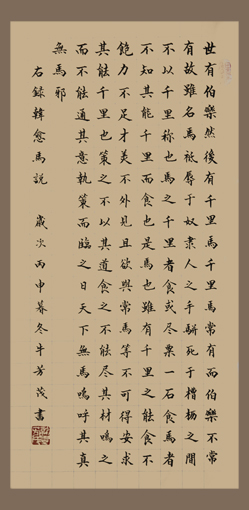 世有伯樂然後有千里馬千里馬常有而伯樂不常
有故雖名馬祗辱于奴隶人之手駢死于槽枥之間
不以千里称也馬之千里者食或尽粟一石食馬者
不知其能千里而食也是馬也雖有千里之能食不
飽力不足才美不外見且欲與常馬等不可得安求
其能千里也策之不以其道食之不能尽其材鳴之
而不能通其意執策而臨之曰天下無馬嗚呼其真
無馬邪
右録韓愈馬說 歲次丙申暮冬牛芳茂書